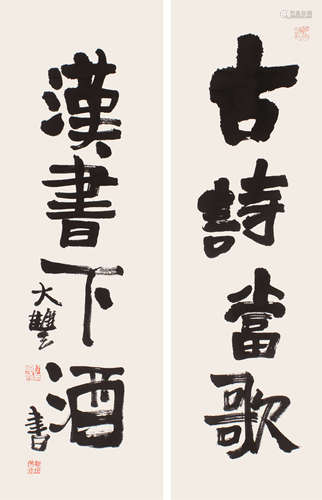 古詩當歌
漢書下酒
大豐書